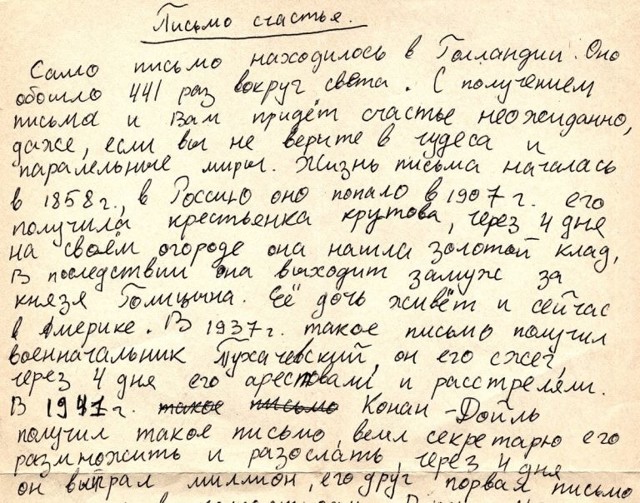 Письмо счастья.
Само письмо находилось в Голландии. Оно
обошло 441 раз вокруг света. С получением
письма и Вам придёт счастье неожиданно,
даже, если вы не верите в чудеса и
паралельные миры. Жизнь письма началась
в 1858 г., в Россию оно попало в 1907 г. его
получила крестьенка крутова, через 4 дня
на своём огороде она нашла золотой клад,
в последствии она выходит замуж за
князя Голицына. Её дочь живёт и сейчас
в Америке. В 1937 г. такое письмо получил
военначальник Тухачевский, он его сжег,
через 4 дня его арестовали и расстреляли.
В 1941 г. такое письмо Конан-Дойль
получил такое письмо, велил секретарю его
размножить и разослать, через 4 дня
он выйграл миллион, его друг, порвал письмо